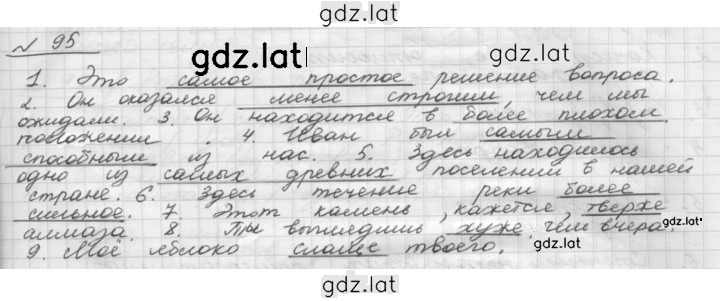 gdz.lat
№ 95
gdz.lat
1. Это самое простое решение вопроса.
2. Он оказался менее строгим, чем мы
ожидали. 3. Он находится в более плохом
положении. 4. Иван был самым
способным из нас. 5. Здесь находилось
одно из самых древних поселений в нашей
стране. 6. Здесь течение реки более
сильное. 7. Этот камень, кажется, тверже
алмаза. 8. Ты выглядишь хуже, чем вчера.
gdz.lat
9. Моё яблоко слаще твоего.
gdz.lat
gdz.lat